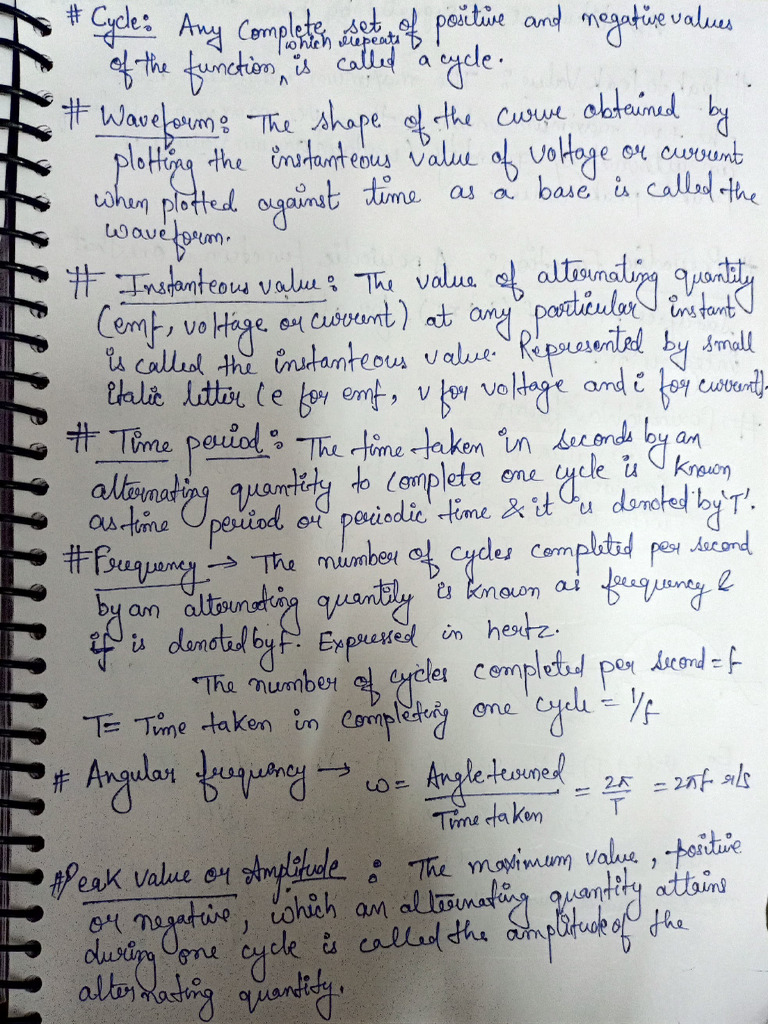 # Cycle: Any Complete set of positive and negative values
of the function, which repeats is called a cycle.
# Waveform: The shape of the curve obtained by
plotting the instanteous value of voltage or current
when plotted against time as a base is called the
waveform.
# Instanteous value: The value of alternating quantity
(emf, voltage or current) at any particular instant
is called the instanteous value. Represented by small
italic letter (e for emf, v for voltage and i for current).
# Time period: The time taken in seconds by an
alternating quantity to complete one cycle is known
as time period or periodic time & it is denoted by 'T'.
# Frequency → The number of cycles completed per second
by an alternating quantity is known as frequency &
if is denoted by f. Expressed in hertz.
The number of cycles completed per second = f
T = Time taken in completing one cycle = 1/f
# Angular frequency → ω = Angle turned / Time taken = 2π/T = 2πf r/s
# Peak value or Amplitude : The maximum value, positive
or negative, which an alternating quantity attains
during one cycle is called the amplitude of the
alternating quantity.